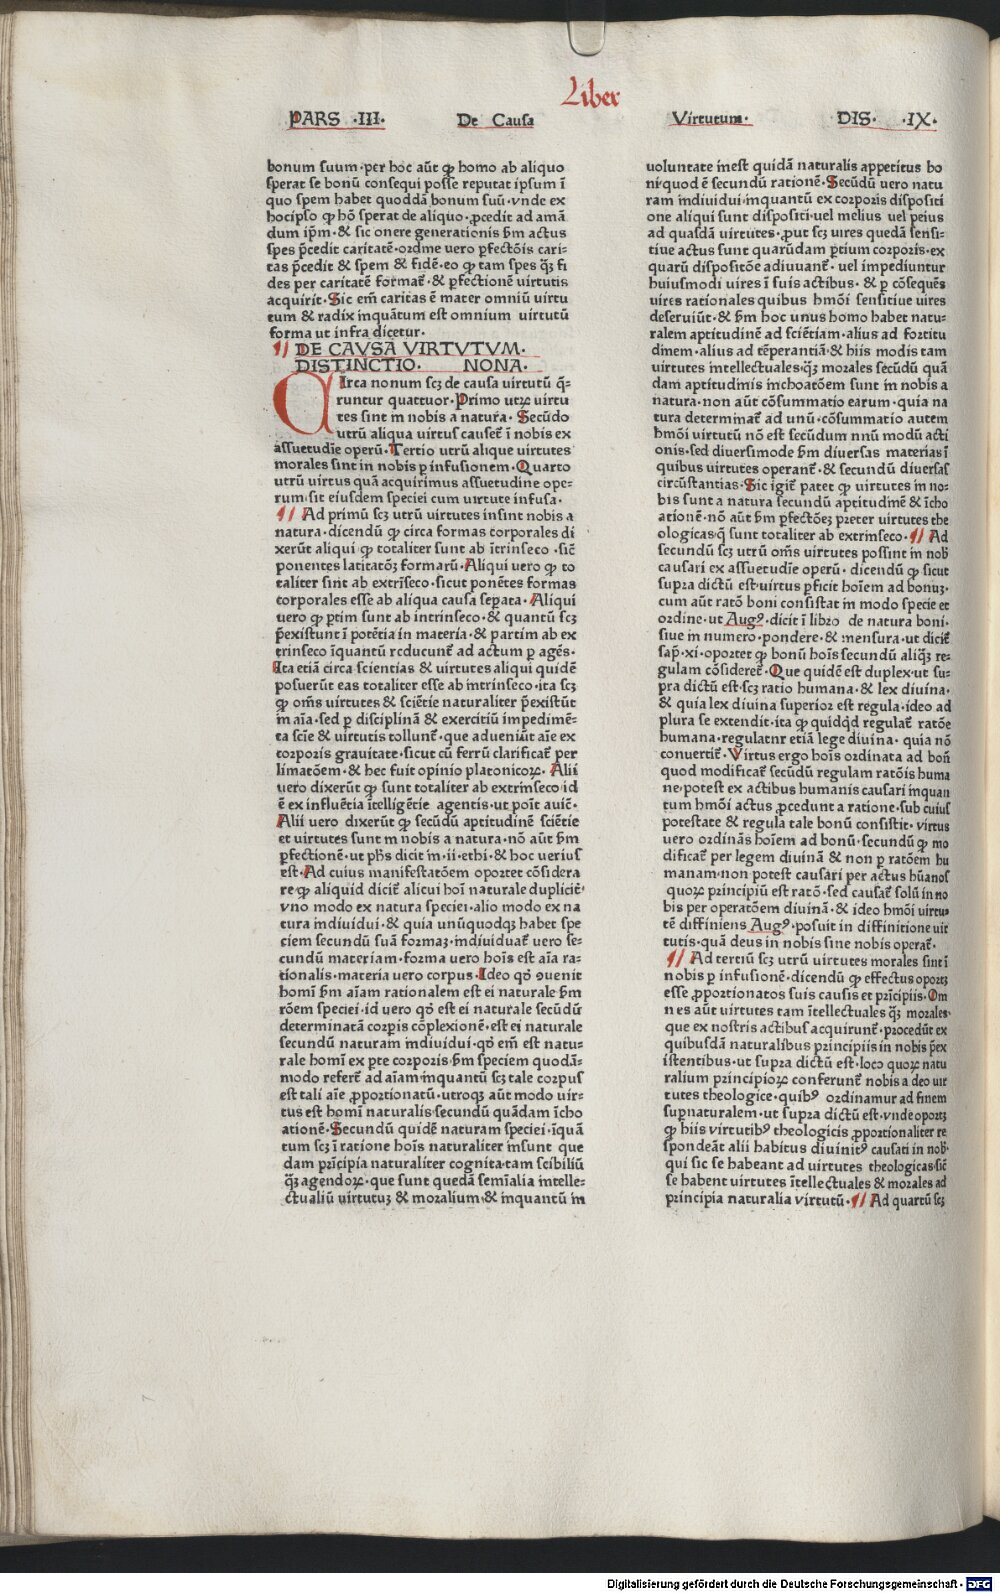 Liber
PARS ·III· De Causa Virtutum· DIS· ·IX·
bonum suum·per hoc aūt ꝙ homo ab aliquo
sperat se bonū consequi posse reputat ipsum ī
quo spem habet quoddā bonum suū·vnde ex
hocipso ꝙ hō sperat de aliquo·ꝓcedit ad amā
dum ip̄m·& sic onere generationis ẜm actus
spes p̄cedit caritatē·ordine vero ꝑfectōis cari⸗
tas p̄cedit & spem & fidē·eo ꝙ tam spes qꝫ̄ fi
des per caritatē format᷑·& ꝑfectionē virtutis
acquirit·Sic em̄ caritas ē mater omniū virtu
tum & radix inquātum est omnium virtutū
forma ut infra dicetur·
DE CAVSA VIRTVTVM·
DISTINCTIO· NONA·
CIrca nonum scꝫ de causa virtutū q̄⸗
runtur quattuor·Primo utꝝ virtu
tes sint in nobis a natura·Secūdo
utrū aliqua virtus causet᷑ ī nobis ex
assuetudīe operū·Tertio utrū alique virtutes
morales sint in nobis ꝑ infusionem·Quarto
utrū virtus quā acquirimus assuetudine ope⸗
rum·sit eiusdem speciei cum virtute infusa·
Ad primū scꝫ utrū virtutes insint nobis a
natura·dicendū ꝙ circa formas corporales di
xerūt aliqui ꝙ totaliter sunt ab ītrinseco·sic᷑
ponentes latitatōꝫ formarū·Aliqui uero ꝙ to
taliter sint ab extrīseco·sicut ponētes formas
corporales esse ab aliqua causa seꝑata·Aliqui
uero ꝙ ꝑtim sunt ab intrinseco·& quantū scꝫ
p̄existunt ī potētia in materia·& partim ab ex
trinseco īquantū reducunt᷑ ad actum ꝑ agēs·
Ita etiā circa scientias & virtutes aliqui quidē
posuerūt eas totaliter esse ab intrinseco·ita scꝫ
ꝙ om̄s virtutes & sciētie naturaliter p̄existūt
in aīa·sed ꝑ disciplinā & exercitiū impedimē⸗
ta scīe & virtutis tollunt᷑·que adueniūt aīe ex
corporis grauitate·sicut cū ferrū clarificat᷑ per
limatōem·& hec fuit opinio platonicoꝝ·Alii
uero dixerūt ꝙ sunt totaliter ab extrinseco id
ē ex influētia ītelligētie agentis·ut poīt auic̄·
Alii uero dixerūt ꝙ secūdū aptitudinē sciētie
et uirtutes sunt in nobis a natura·nō aūt ẜm
ꝑfectionē·ut ph̄s dicit in·ii·ethi·& hoc uerius
est·Ad cuius manifestatōem oportet cōsidera
re·ꝙ aliquid dicit᷑ alicui hoī naturale duplicit᷑
vno modo ex natura speciei·alio modo ex na
tura indiuidui·& quia unūquodqꝫ habet spe
ciem secundū suā formaꝫ·indiuiduat᷑ uero se⸗
cundū materiam·forma uero hoīs est aīa ra⸗
tionalis·materia uero corpus·Ideo qd̄ ꝯuenit
homī ẜm aīam rationalem est ei naturale ẜm
rōem speciei·id uero qd̄ est ei naturale secūdū
determinatā corꝑis cōplexionē·est ei naturale
secundū naturam indiuidui·qd̄ em̄ est natu⸗
rale homī ex ꝑte corporis·ẜm speciem quodā⸗
modo refert᷑ ad aīam·inquantū scꝫ tale corpus
est tali aīe ꝓportionatū·utroqꝫ aūt modo uir⸗
tus est homī naturalis·secundū quādam īcho
ationē·Secundū quidē naturam speciei·īquā
tum scꝫ ī ratione hoīs naturaliter insunt que
dam prīcipia naturaliter cognita·tam scibiliū
qꝫ̄ agendoꝝ·que sunt quedā semīalia intelle⸗
ctualiū uirtutuꝫ & moralium·& inquantū in
voluntate inest quidā naturalis appetitus bo
ni·quod ē secundū rationē·Secūdū uero natu
ram indiuidui·inquantū ex corporis dispositi
one aliqui sunt dispositi·uel melius uel peius
ad quasdā uirtutes·ꝓut scꝫ uires quedā sensi⸗
tiue actus sunt quarūdam ꝑtium corporis·ex
quarū dispositōe adiuuant᷑·uel impediuntur
huiusmodi uires ī suis actibus·& ꝑ cōsequēs
uires rationales quibus hm̄oi sensitiue uires
deseruiūt·& ẜm hoc unus homo habet natu⸗
ralem aptitudinē ad sciētiam·alius ad fortitu
dinem·alius ad tēperantiā·& hiis modis tam
uirtutes intellectuales·qꝫ̄ morales secūdū quā
dam aptitudinis inchoatōem sunt in nobis a
natura·non aūt cōsummatio earum·quia na
tura determinat᷑ ad unū·cōsummatio autem
hm̄oi uirtutū nō est secūdum nnū modū acti
onis·sed diuersimode ẜm diuersas materias ī
quibus uirtutes operant᷑·& secundū diuersas
circūstantias·Sic igit᷑ patet ꝙ uirtutes in no⸗
bis sunt a natura secundū aptitudinē & īcho
ationē·nō aūt ẜm ꝑfectōeꝫ preter uirtutes the
ologicas·q̄ sunt totaliter ab extrinseco·Ad
secundū scꝫ utrū om̄s uirtutes possint in nob̄
causari ex assuetudīe operū·dicendū ꝙ sicut
supra dictū est·uirtus ꝑficit hoīem ad bonuꝫ·
cum aūt ratō boni consistat in modo specie et
ordine·ut Augꝰ·dicit ī libro de natura boni·
siue in numero·pondere·& mensura·ut dicit᷑
sap̄·xi·oportet ꝙ bonū hoīs secundū aliqꝫ̄ re⸗
gulam cōsideret᷑·Que quidē est duplex·ut su⸗
pra dictū est·scꝫ ratio humana·& lex diuina·
& quia lex diuina superior est regula·ideo ad
plura se extendit·ita ꝙ quidqd̄ regulat᷑ ratōe
humana·regulatnr etiā lege diuina·quia nō
conuertit᷑·Virtus ergo hoīs ordinata ad bon̄
quod modificat᷑ secūdū regulam ratōis huma
ne·potest ex actibus humanis causari inquan
tum hm̄oi actus ꝓcedunt a ratione·sub cuius
potestate & regula tale bonū consistit·virtus
uero ordinās hoīem ad bonū·secundū ꝙ mo
dificat᷑ per legem diuinā & non ꝑ ratōem hu
manam·non potest causari per actus hūanos
quoꝝ principiū est ratō·sed causat᷑ solū in no
bis per operatōem diuinā·& ideo hm̄oi uirtu⸗
tē diffiniens Augꝰ·posuit in diffinitione uir
tutis·quā deus in nobis sine nobis operat᷑·
Ad tertiū scꝫ utrū uirtutes morales sint ī
nobis ꝑ infusionē·dicendū ꝙ effectus oportꝫ
esse ꝓportionatos suis causis et prīcipiis·Om
n es aūt uirtutes tam ītellectuales qꝫ̄ morales·
que ex nostris actibus acquirunt᷑·procedūt ex
quibusdā naturalibus principiis in nobis p̄ex
istentibus·ut supra dictū est·loco quoꝝ natu
ralium principioꝝ conferunt᷑ nobis a deo uir
tutes theologice·quibꝰ ordinamur ad finem
suꝑnaturalem·ut supra dictū est·vnde oportꝫ
ꝙ hiis virtutibꝰ theologicis ꝓportionaliter re
spondeāt alii habitus diuinitꝰ causati in nob̄·
qui sic se habeand ad uirtutes theologicas·sic᷑
se habent uirtutes ītellectuales & morales ad
principia naturalia virtutū·Ad quartū scꝫ
Digitalisierung gefördert durch die Deutsche Forschungsgemeinschaft - DFG